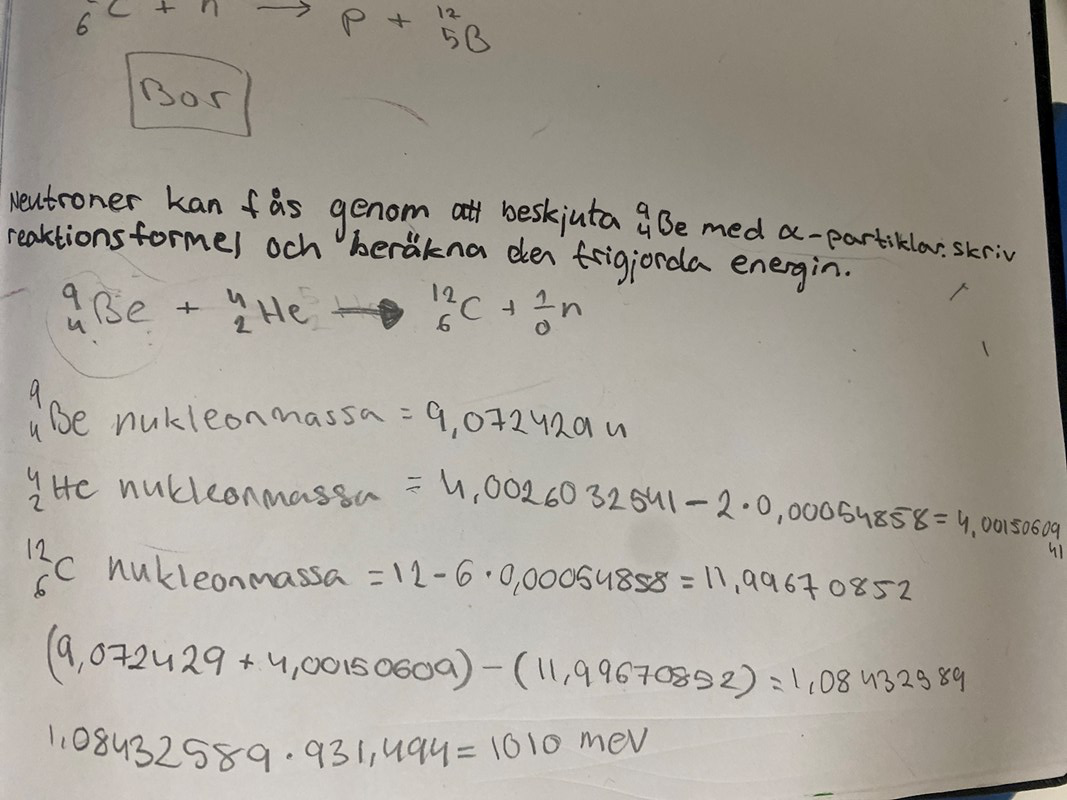 ₆C + n → p + ¹²₅B
Bor
Neutroner kan fås genom att beskjuta ⁹₄Be med α-partiklar. skriv
reaktionsformel och beräkna den frigjorda energin.
⁹₄Be + ⁴₂He → ¹²₆C + ¹₀n
⁹₄Be nukleonmassa = 9,072429 u
⁴₂He nukleonmassa = 4,0026032541 - 2·0,00054858 = 4,0015060941
¹²₆C nukleonmassa = 12 - 6·0,00054858 = 11,99670852
(9,072429 + 4,00150609) - (11,99670852) = 1,08432589
1,08432589·931,494 = 1010 meV